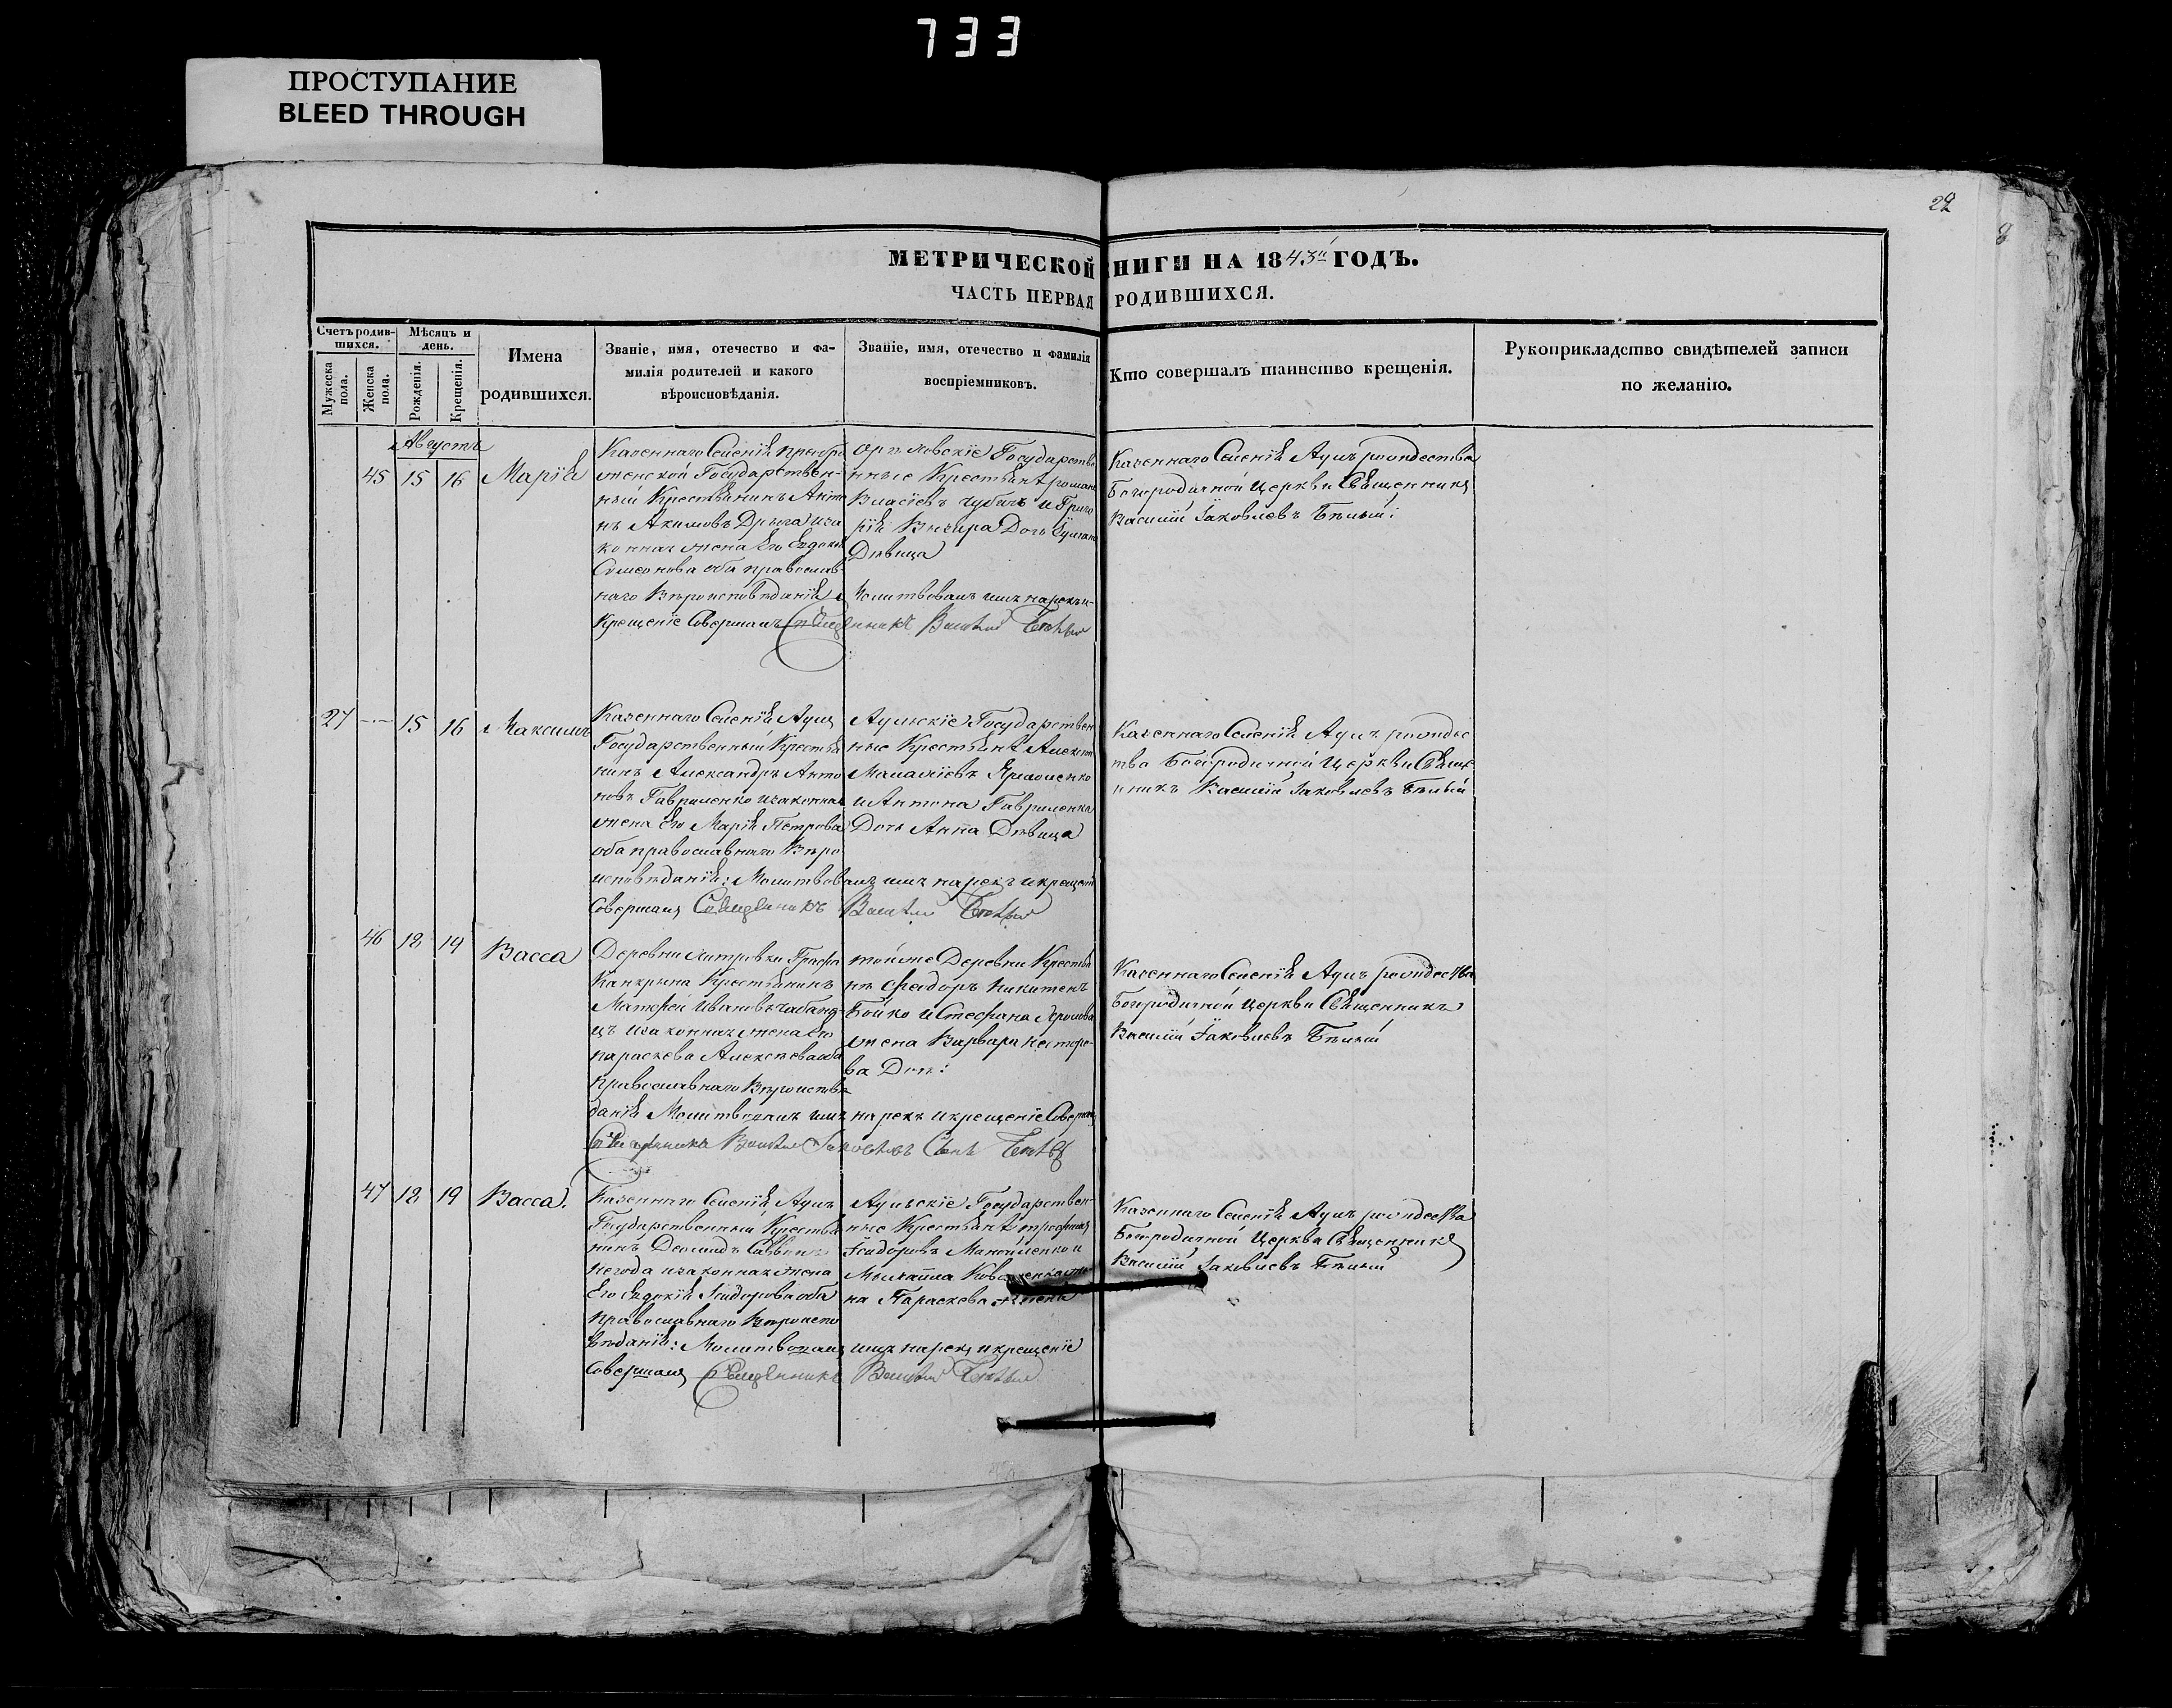 733
ПРОСТУПАНИЕ
BLEED THROUGH
29
МЕТРИЧЕСКОЙ НИГИ НА 1843й ГОДЪ.
ЧАСТЬ ПЕРВАЯ РОДИВШИХСЯ.
Счетъ родив-
шихся.
Мужеска пола.
Женска пола.
Мѣсяцъ и
день.
Рожденія.
Крещенія.
Имена
родившихся.
Званіе, имя, отечество и фа-
милія родителей и какого
вѣроисповѣданія.
Званіе, имя, отечество и фамилія
воспріемниковъ.
Кто совершалъ таинство крещенія.
Рукоприкладство свидѣтелей записи
по желанію.
Августъ
45 15 16 Марія
Казеннаго Селенія
Государствен-
ный Крестьянинъ Анто
нъ Акимовъ Дрыга и за
конная жена Его Евдокія
Симеонова оба православ-
наго Вѣроисповѣданія
Государстве
нные Крестьяне Роман
Власіевъ Чубичь и Григо
рія Дочь
Дѣвица
Молитвовалъ имя нарекъ и
Крещеніе Совершалъ Священникъ Василій Бѣлый
Казеннаго Селенія Аулъ рождества
Богородичной Церкви Священникъ
Василій Іаковлевъ Бѣлый:
27 15 16 Максимъ
Казеннаго Селенія Аулъ
Государственный Крестья
нинъ Александръ Анто
новъ Гавриленко и законная
жена Его Марія Петрова
оба православнаго Вѣро
исповѣданія: Молитвовалъ имя нарекъ и крещеніе
Совершалъ Священникъ Василій Бѣлый
Аульскіе Государствен
ные Крестьяне
Ярмоленко
и Антона Гавриленка
Дочь Анна Дѣвица
Казеннаго Селенія Аулъ рождес
тва Богородичной Церкви Свяще
нникъ Василій Іаковлевъ Бѣлый
46 18 19 Васса
Деревни Графа
Канкрина Крестьянинъ
Матфей Ивановъ Чабане
цъ и законная жена Его
Параскева Алексѣева оба
православнаго Вѣроисповѣ
данія Молитвовалъ имя нарекъ и крещеніе Совершалъ
Священникъ Василій Іаковлевъ Сынъ Бѣлый
тойже Деревни Крестья
не Феодоръ Никитенъ
Бойко и Стефана
жена Варвара Несторо-
ва Дочь:
Казеннаго Селенія Аулъ рождества
Богородичной Церкви Священникъ
Василій Іаковлевъ Бѣлый
47 18 19 Васса.
Казеннаго Селенія Аулъ
Государственный Крестья
нинъ Саввинъ
Негода и законная жена
Его Евдокія Ісидорова оба
православнаго Вѣроиспо
вѣданія: Молитвовалъ имя нарекъ и крещеніе
Совершалъ Священникъ Василій Бѣлый
Аульскіе Государствен-
ные Крестьяне Трофимъ
Ісидоровъ Манойленко и
Михаила
на Параскева жена
Казеннаго Селенія Аулъ рождества
Богородичной Церкви Священникъ
Василій Іаковлевъ Бѣлый